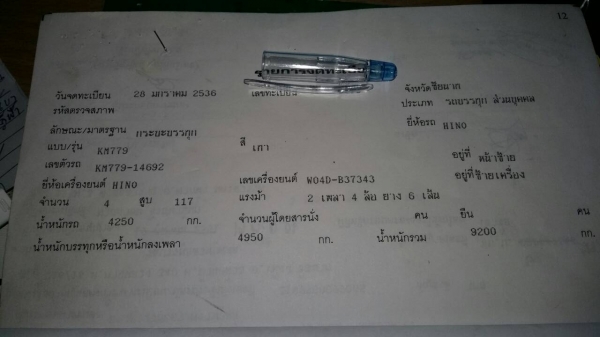 12
รายการจดทะเบียน
วันจดทะเบียน 28 มกราคม 2536 เลขทะเบียน จังหวัด
รหัสตรวจสภาพ ประเภท รถบรรทุก ส่วนบุคคล
ลักษณะ/มาตรฐาน กระบะบรรทุก ยี่ห้อรถ HINO
แบบ/รุ่น KM779 สี เทา
เลขตัวรถ KM779-14692 อยู่ที่ หน้าซ้าย
ยี่ห้อเครื่องยนต์ HINO เลขเครื่องยนต์ W04D-B37343 อยู่ที่ ซ้ายเครื่อง
จำนวน 4 สูบ 117 แรงม้า 2 เพลา 4 ล้อ ยาง 6 เส้น
น้ำหนักรถ 4250 กก. จำนวนผู้โดยสารนั่ง คน ยืน คน
น้ำหนักบรรทุกหรือน้ำหนักลงเพลา 4950 กก. น้ำหนักรวม 9200 กก.